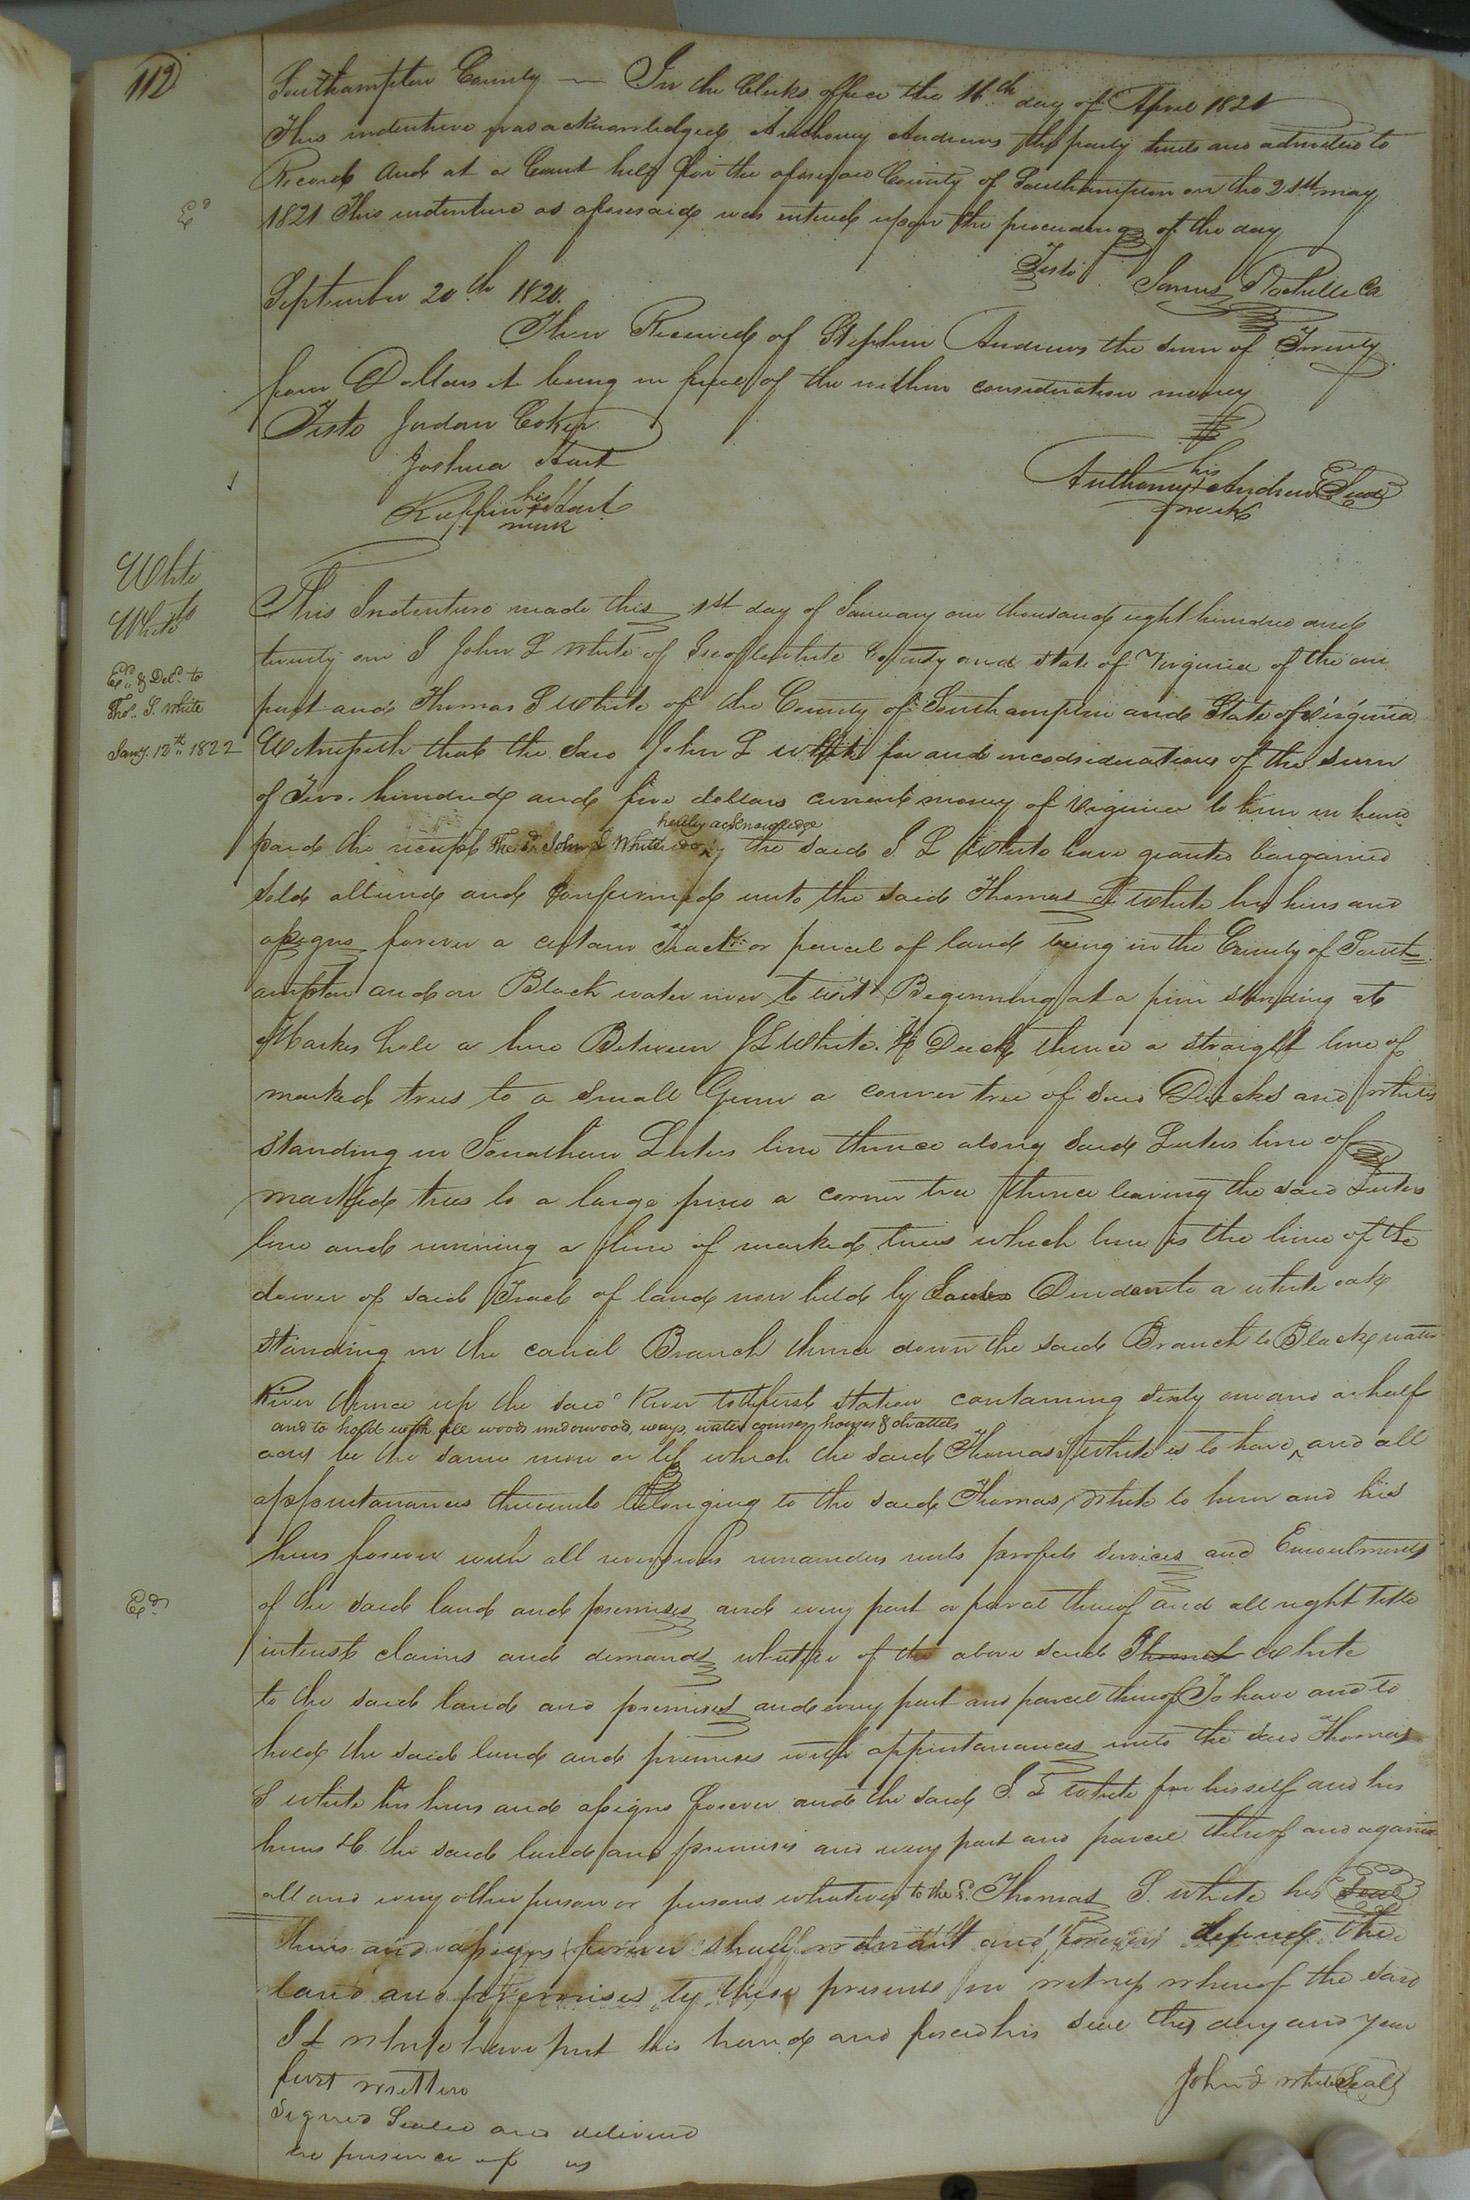 112
Southampton County — In the Clerks office the 16th day of April 1821
This indenture was acknowledged Anthony Andrews the party hereto and admitted to
Record And at a Court held for the aforesaid County of Southampton on the 21st may
1821 This indenture as aforesaid was entered upon the proceedings of the day
Exd
Teste James Rochelle Ck
September 20th 1820.
Then Received of Stephen Andrews the sum of Twenty
four Dollars it being in full of the within consideration money
Teste Jordan Coker
Joshua Hart
his
Ruffin + Hart
mark
his
Anthony + Andrews Seal
mark
White
to
White
Exd. & Deld. to
Thos. S. White
Jany. 12th 1822
This Indenture made this 1st day of January one thousand eight hundred and
twenty one I John L White of Isle of white County and State of Virginia of the one
part and Thomas S White of the County of Southampton and State of Virginia
Witnesseth that the Said John L white for and in considerations of the Sum
of Two hundred and five dollars current money of Virginia to him in hand
hereby acknowledge
paid the receipt The sd. John L White do the said J. L White have granted bargained
Sold aliened and Confirmed unto the said Thomas S White his heirs and
assigns forever a certain Tract or parcel of land being in the County of South-
ampton and on Black water river to wit Beginning at a pine standing at
hole a line Between J L White. & Duck thence a straight line of
marked trees to a small Gum a corner tree of said Ducks and whites
standing in Jonathan Luters line thence along said Luters line of
marked trees to a large pine a corner tree thence leaving the said Luters
line and running a line of marked trees which line is the line of the
dower of said Track of land now held by to a white oak
standing in the canal Branch thence down the said Branch to Black water
River thence up the said River to the first station containing sixty one and a half
and to hold with all woods underwoods, ways, water courses houses & chattels
acres be the same more or less which the said Thomas S White is to have and all
appurtanances thereunto belonging to the said Thomas White to him and his
heirs forever with all reversions remainders rents profits services and Emoluments
Exd
of the said land and premises and every part or parcel thereof and all right title
interest claims and demands whatsoe of the above said Thomas White
to the said land and premises and every part and parcel thereof To have and to
hold the said land and premises with appurtanances unto the said Thomas
S White his heirs and assigns forever and the said J. L White for hisself and his
heirs &c. the said land and premises and every part and parcel thereof and against
all and every other person or persons whatever to the sd. Thomas S. White his
heirs and assigns forever shall warrant and forever defend the
land and premises by these presents In witness whereof the said
J L White have put his hand and his seal the day and year
first written
John L White Seal
Signed Sealed and delivered
in presence of us